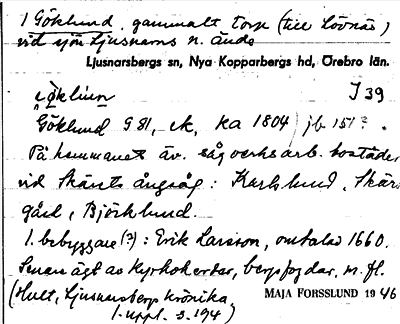 1 Göklund, gammalt torp (till Lövnäs)
vid sjön Ljusnarns n. ände
Ljusnarsbergs sn, Nya Kopparbergs hd, Örebro län.
I 39
Göklund G 81, ek, ka 1804, jb. 151?.
På hemmanet äv. sågverksarb. bostäder
vid Skärets ångsåg: Karlslund, Skär-
gård, Björklund.
1. bebyggare (?): Erik Larsson, omtalad 1660.
Senare ägt av kyrkoherdar, bergsfogdar, m. fl.
(Hult, Ljusnarsbergs krönika,
MAJA FORSSLUND 1946
1. uppl. s. 194)